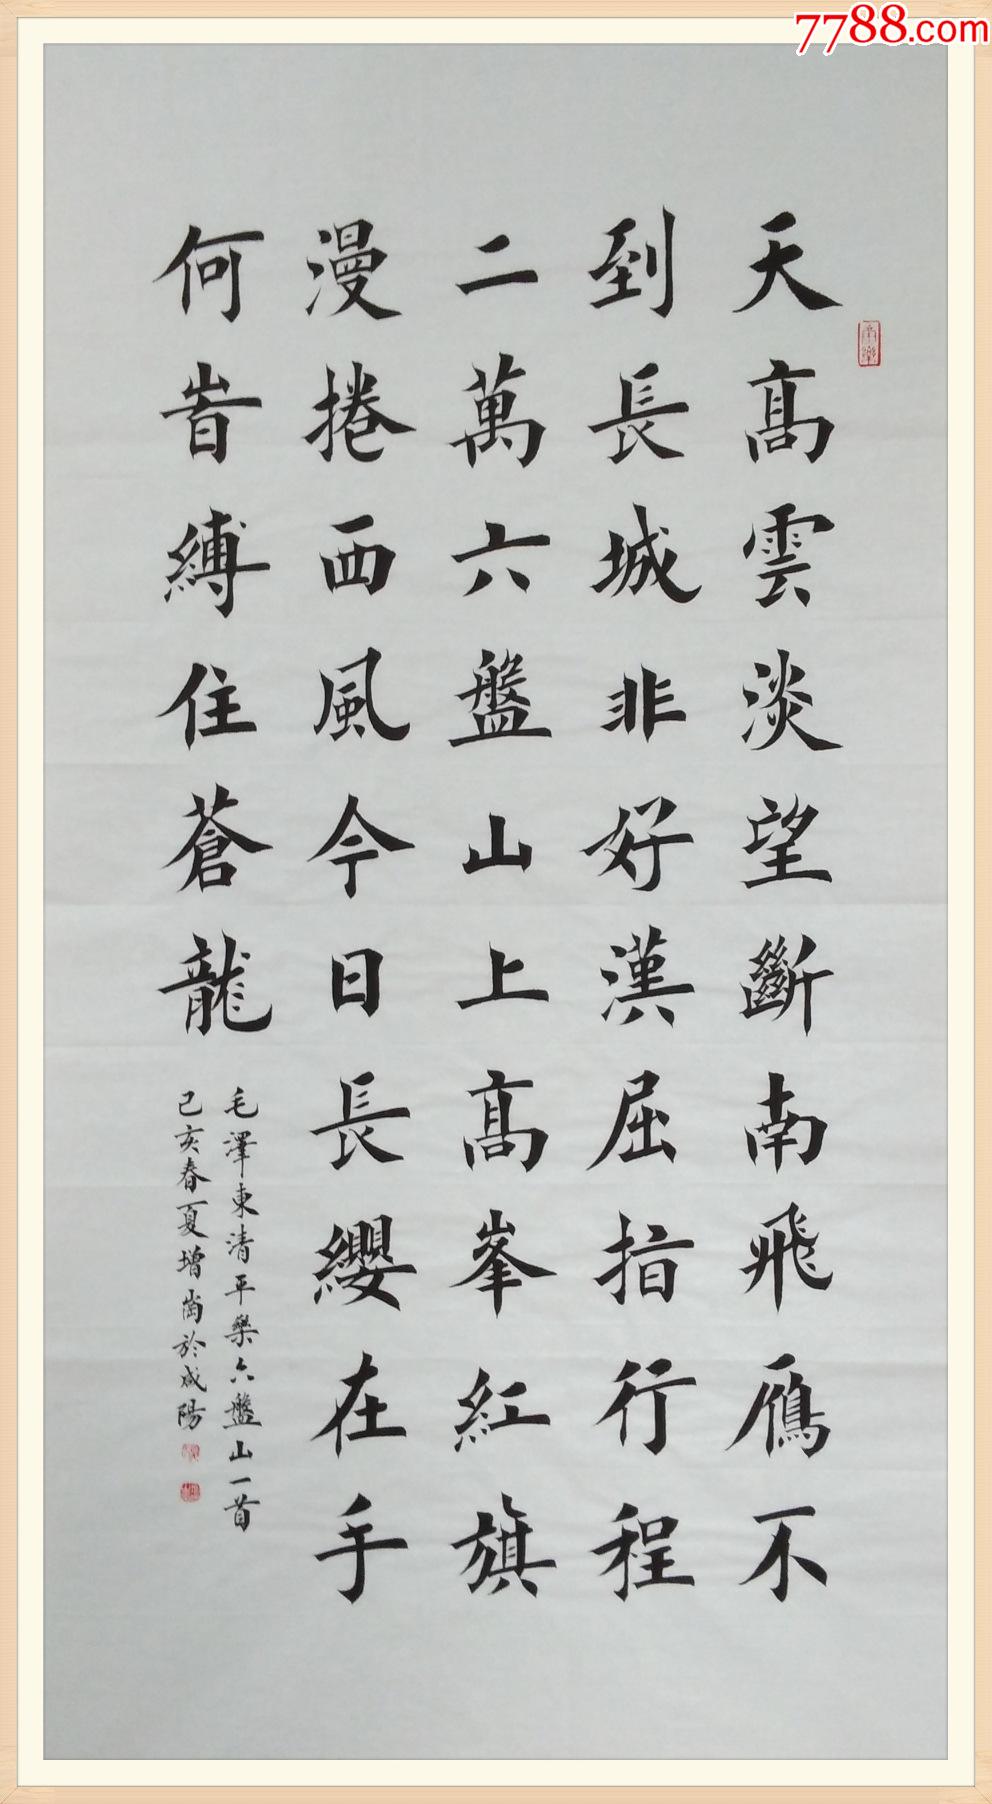 7788.com
天高雲淡望斷南飛雁不
到長城非好漢屈指行程
二萬六盤山上高峯紅旗
漫捲西風今日長纓在手
何旹縛住蒼龍
毛澤東清平樂六盤山一首
己亥春夏增崗於咸陽